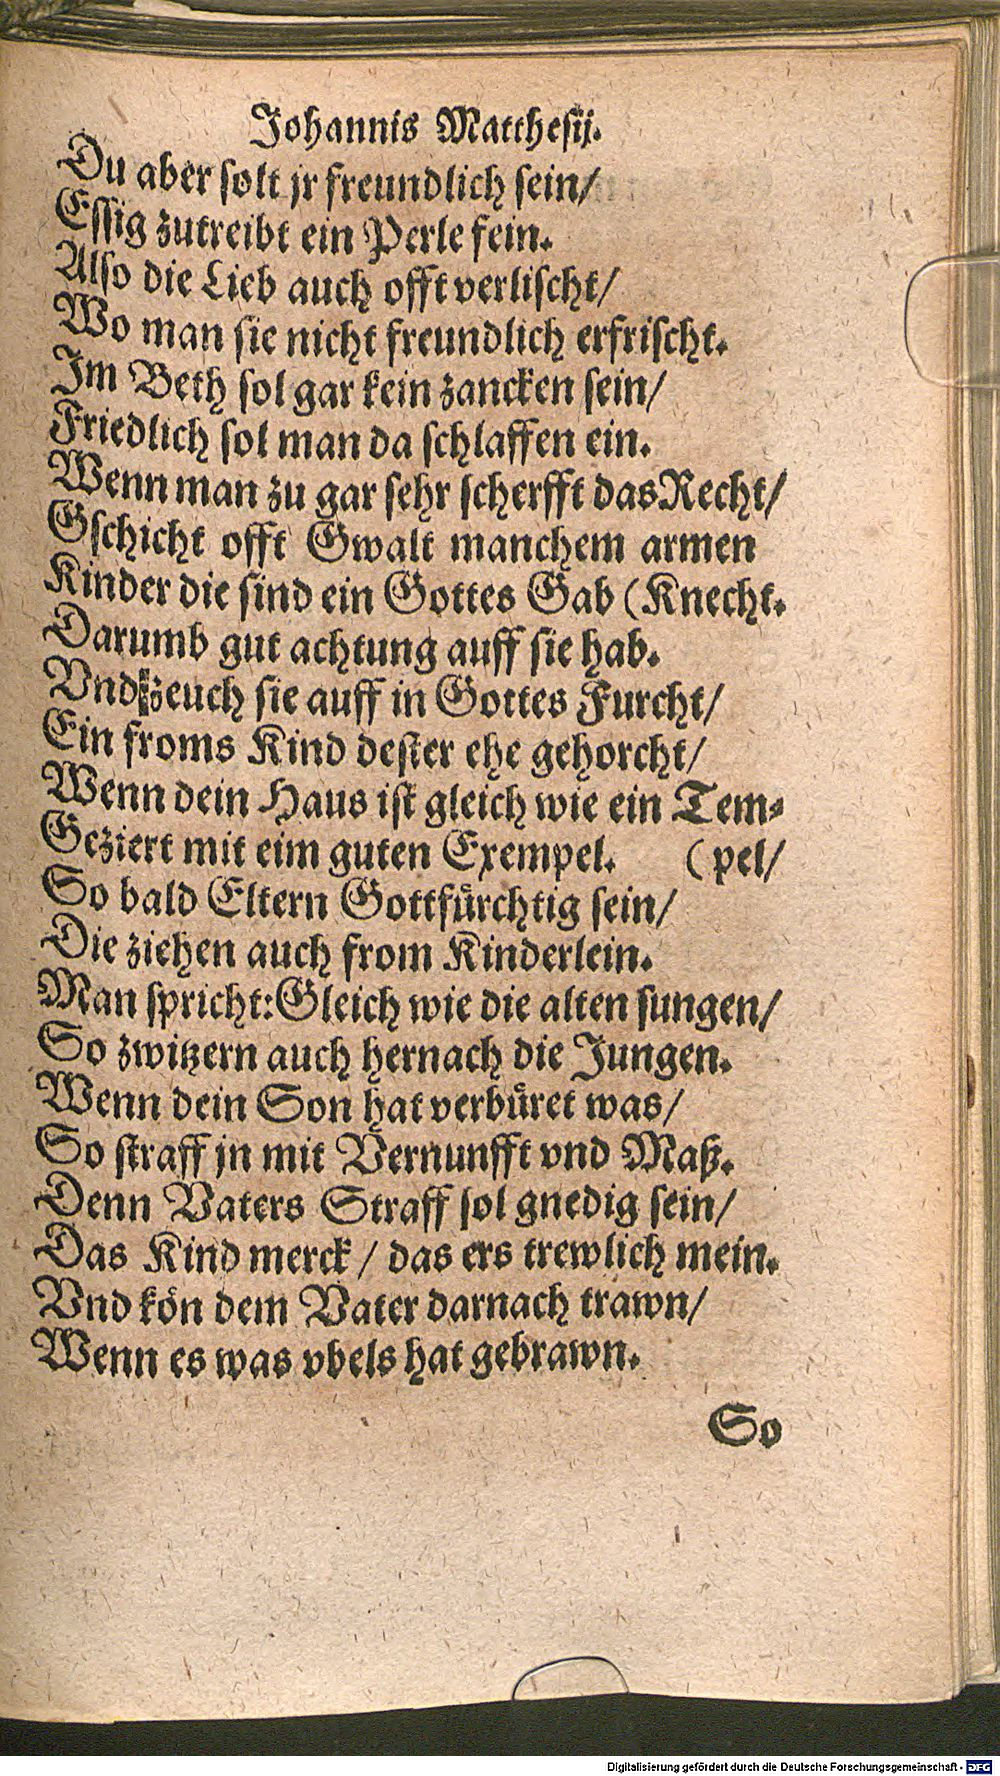 Johannis Matthesij.
Du aber solt jr freundlich sein/
Essig zutreibt ein Perle fein.
Also die Lieb auch offt verlischt/
Wo man sie nicht freundlich erfrischt.
Im Beth sol gar kein zancken sein/
Friedlich sol man da schlaffen ein.
Wenn man zu gar sehr scherfft das Recht/
Gschicht offt Gwalt manchem armen
Kinder die sind ein Gottes Gab (Knecht.
Darumb gut achtung auff sie hab.
Vnd zeuch sie auff in Gottes Furcht/
Ein froms Kind dester ehe gehorcht/
Wenn dein Haus ist gleich wie ein Tem-
Geziert mit eim guten Exempel. (pel/
So bald Eltern Gottfürchtig sein/
Die ziehen auch from Kinderlein.
Man spricht: Gleich wie die alten sungen/
So zwitzern auch hernach die Jungen.
Wenn dein Son hat verbüret was/
So straff jn mit Vernunfft vnd Maß.
Denn Vaters Straff sol gnedig sein/
Das Kind merck / das ers trewlich mein.
Vnd kön dem Vater darnach trawn/
Wenn es was vbels hat gebrawn.
So
Digitalisierung gefördert durch die Deutsche Forschungsgemeinschaft - DFG